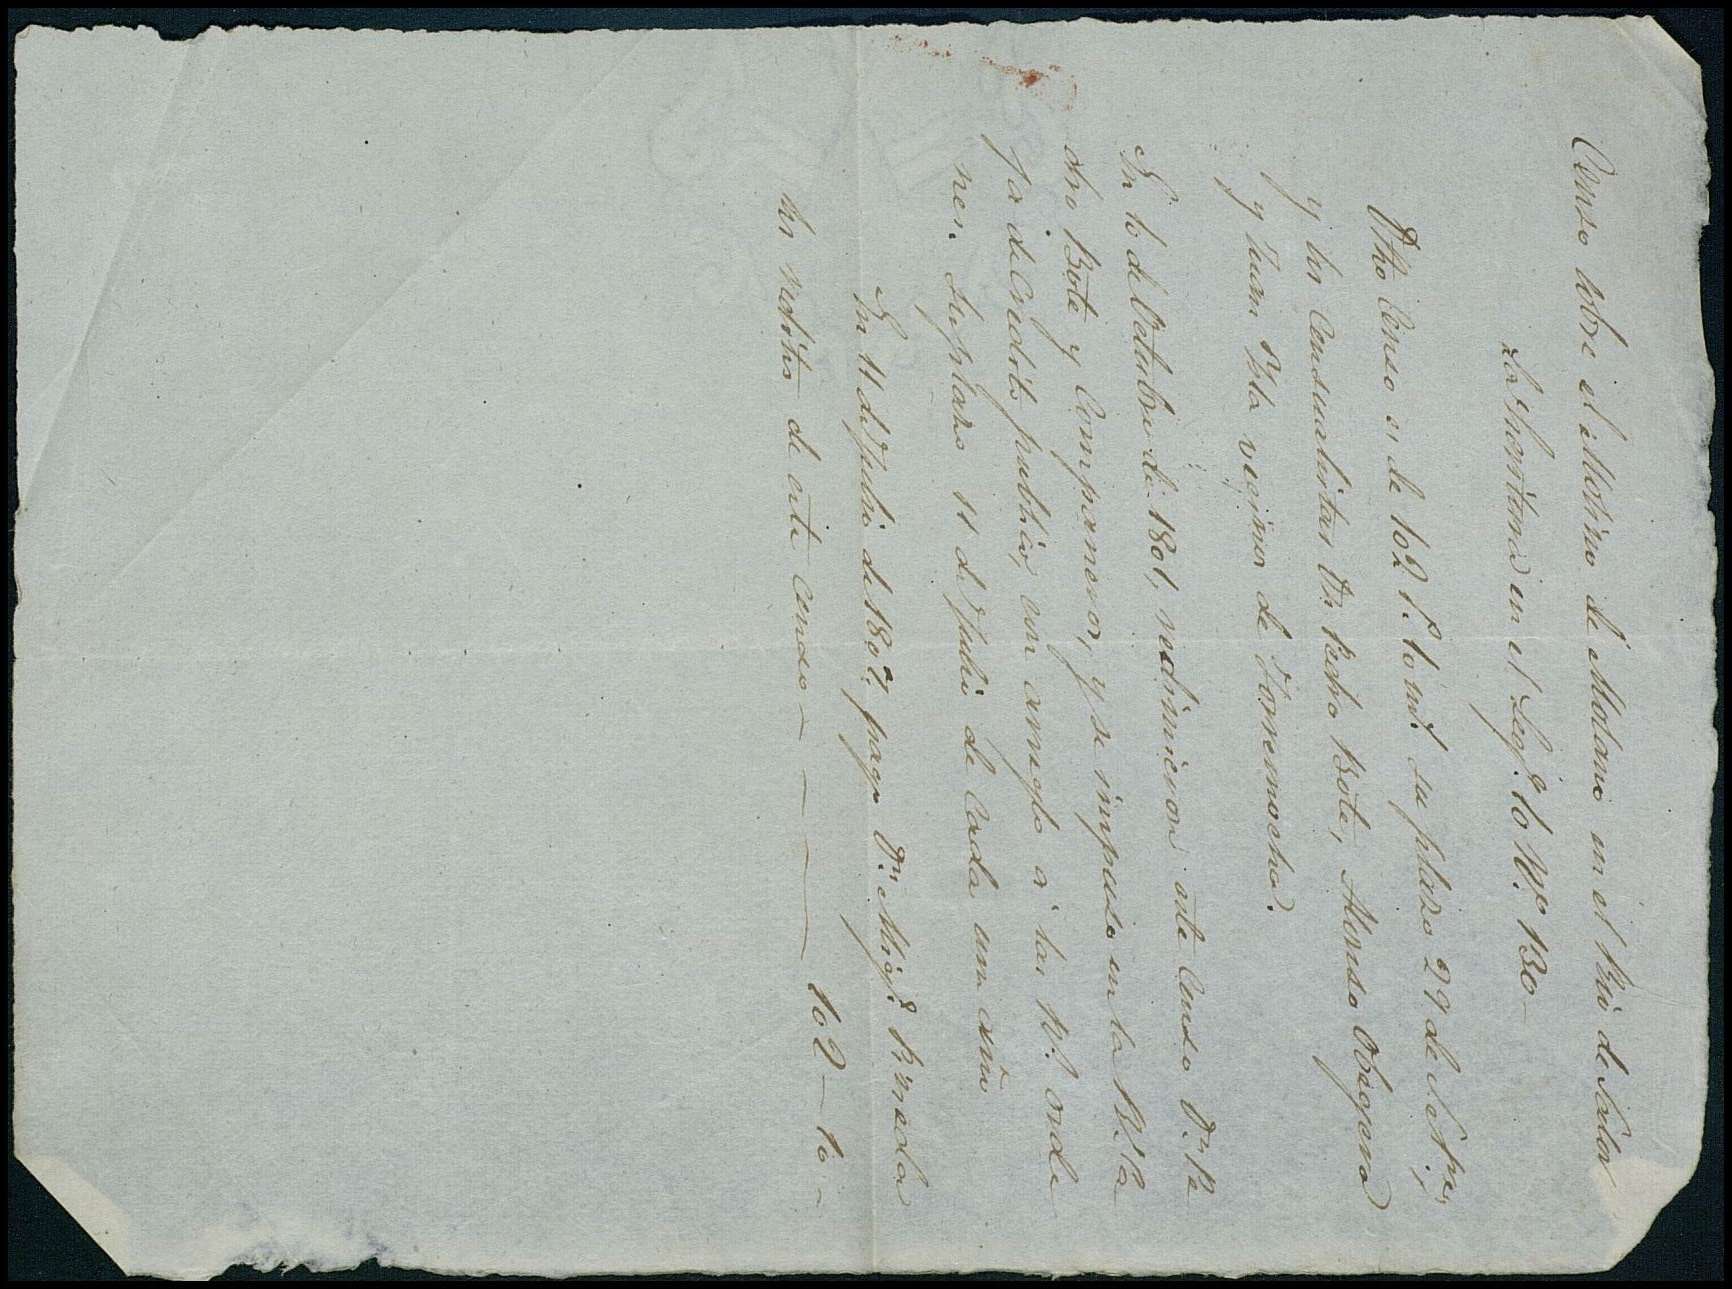 Censo sobre el Molino de Molano en el Rio de Salor
La Escritura en el Leg.º 10 N.º 130
Dho Censo es de 102 r.s 10 m.s su plazo 29 de Setre,
y los Censualistas Dn. Pedro Bote, Alonso
y Juan Pla vecinos de Torremocha.
En 10 de Octubre de 1801, redimieron este Censo Dn. Pe
dro Bote y Companeros, y se impuso en la Rl. Ca
ja de Credito publico, con arreglo à las Rs. orde
nes. Su plazo 11 de Julio de Cada un año
En 11 de Julio de 1802, pago Dn. Migl. Pineda
los reditos de este Censo — — — — 102 — 10 —